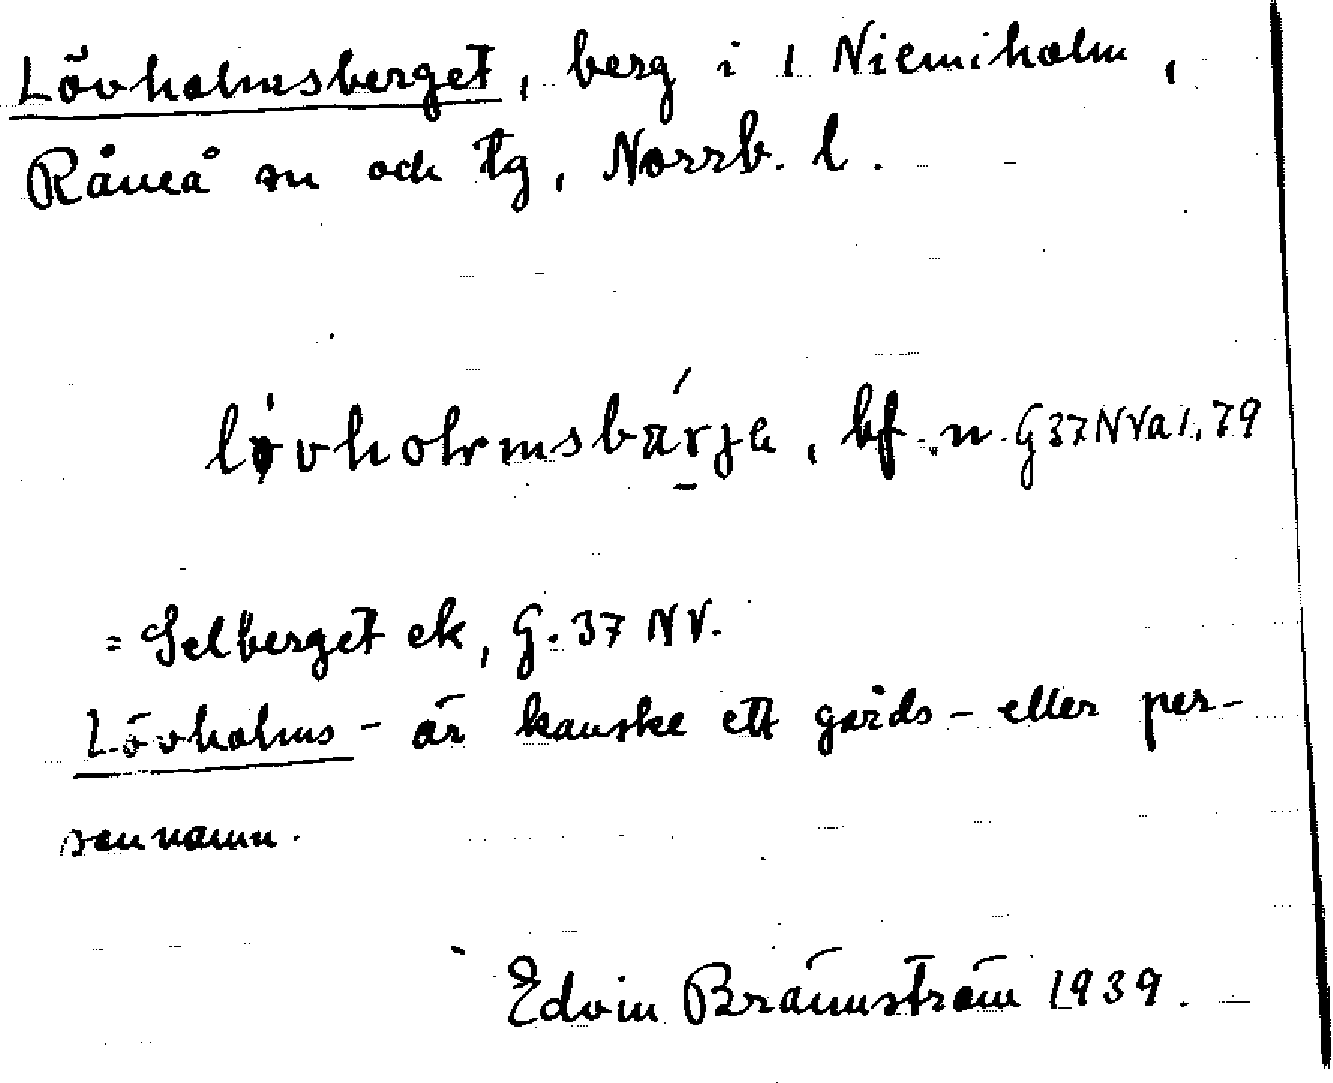 Lövholmsberget, berg i 1 Niemiholm,
Råneå sn och tg, Norrb. l.
bf. n. G37NVa1,79
= Selberget ek, G. 37 NV.
Lövholms- är kanske ett gårds- eller per-
sonnamn.
Edvin Brännström 1939.